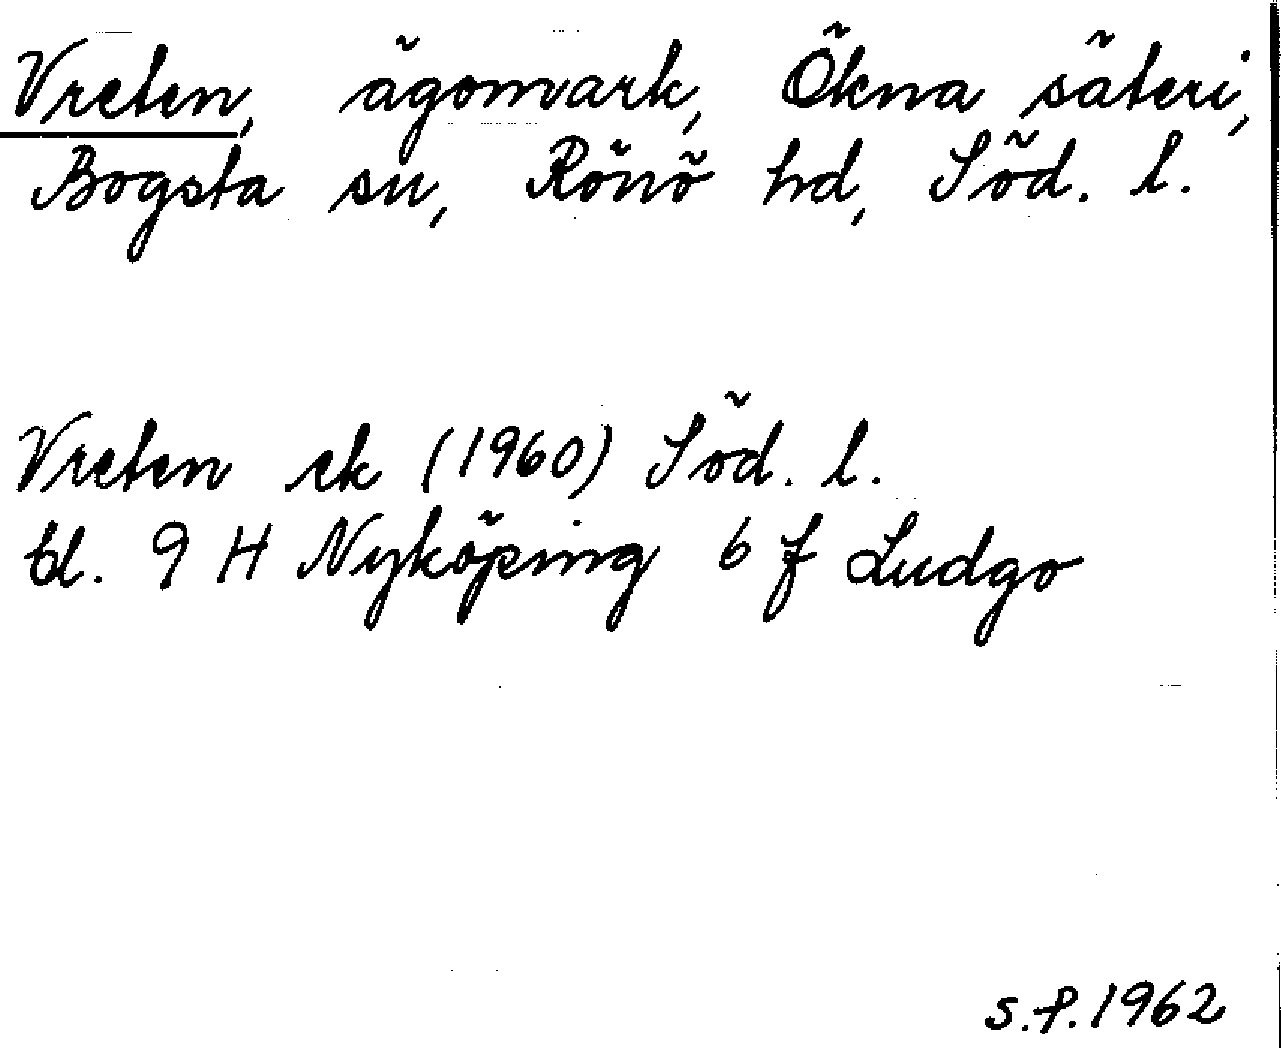 Vreten, ägomark, Ökna säteri,
Bogsta sn, Rönö hd, Söd. l.
Vreten ek (1960) Söd. l.
bl. 9 H Nyköping 6 f Ludgo
S.F. 1962